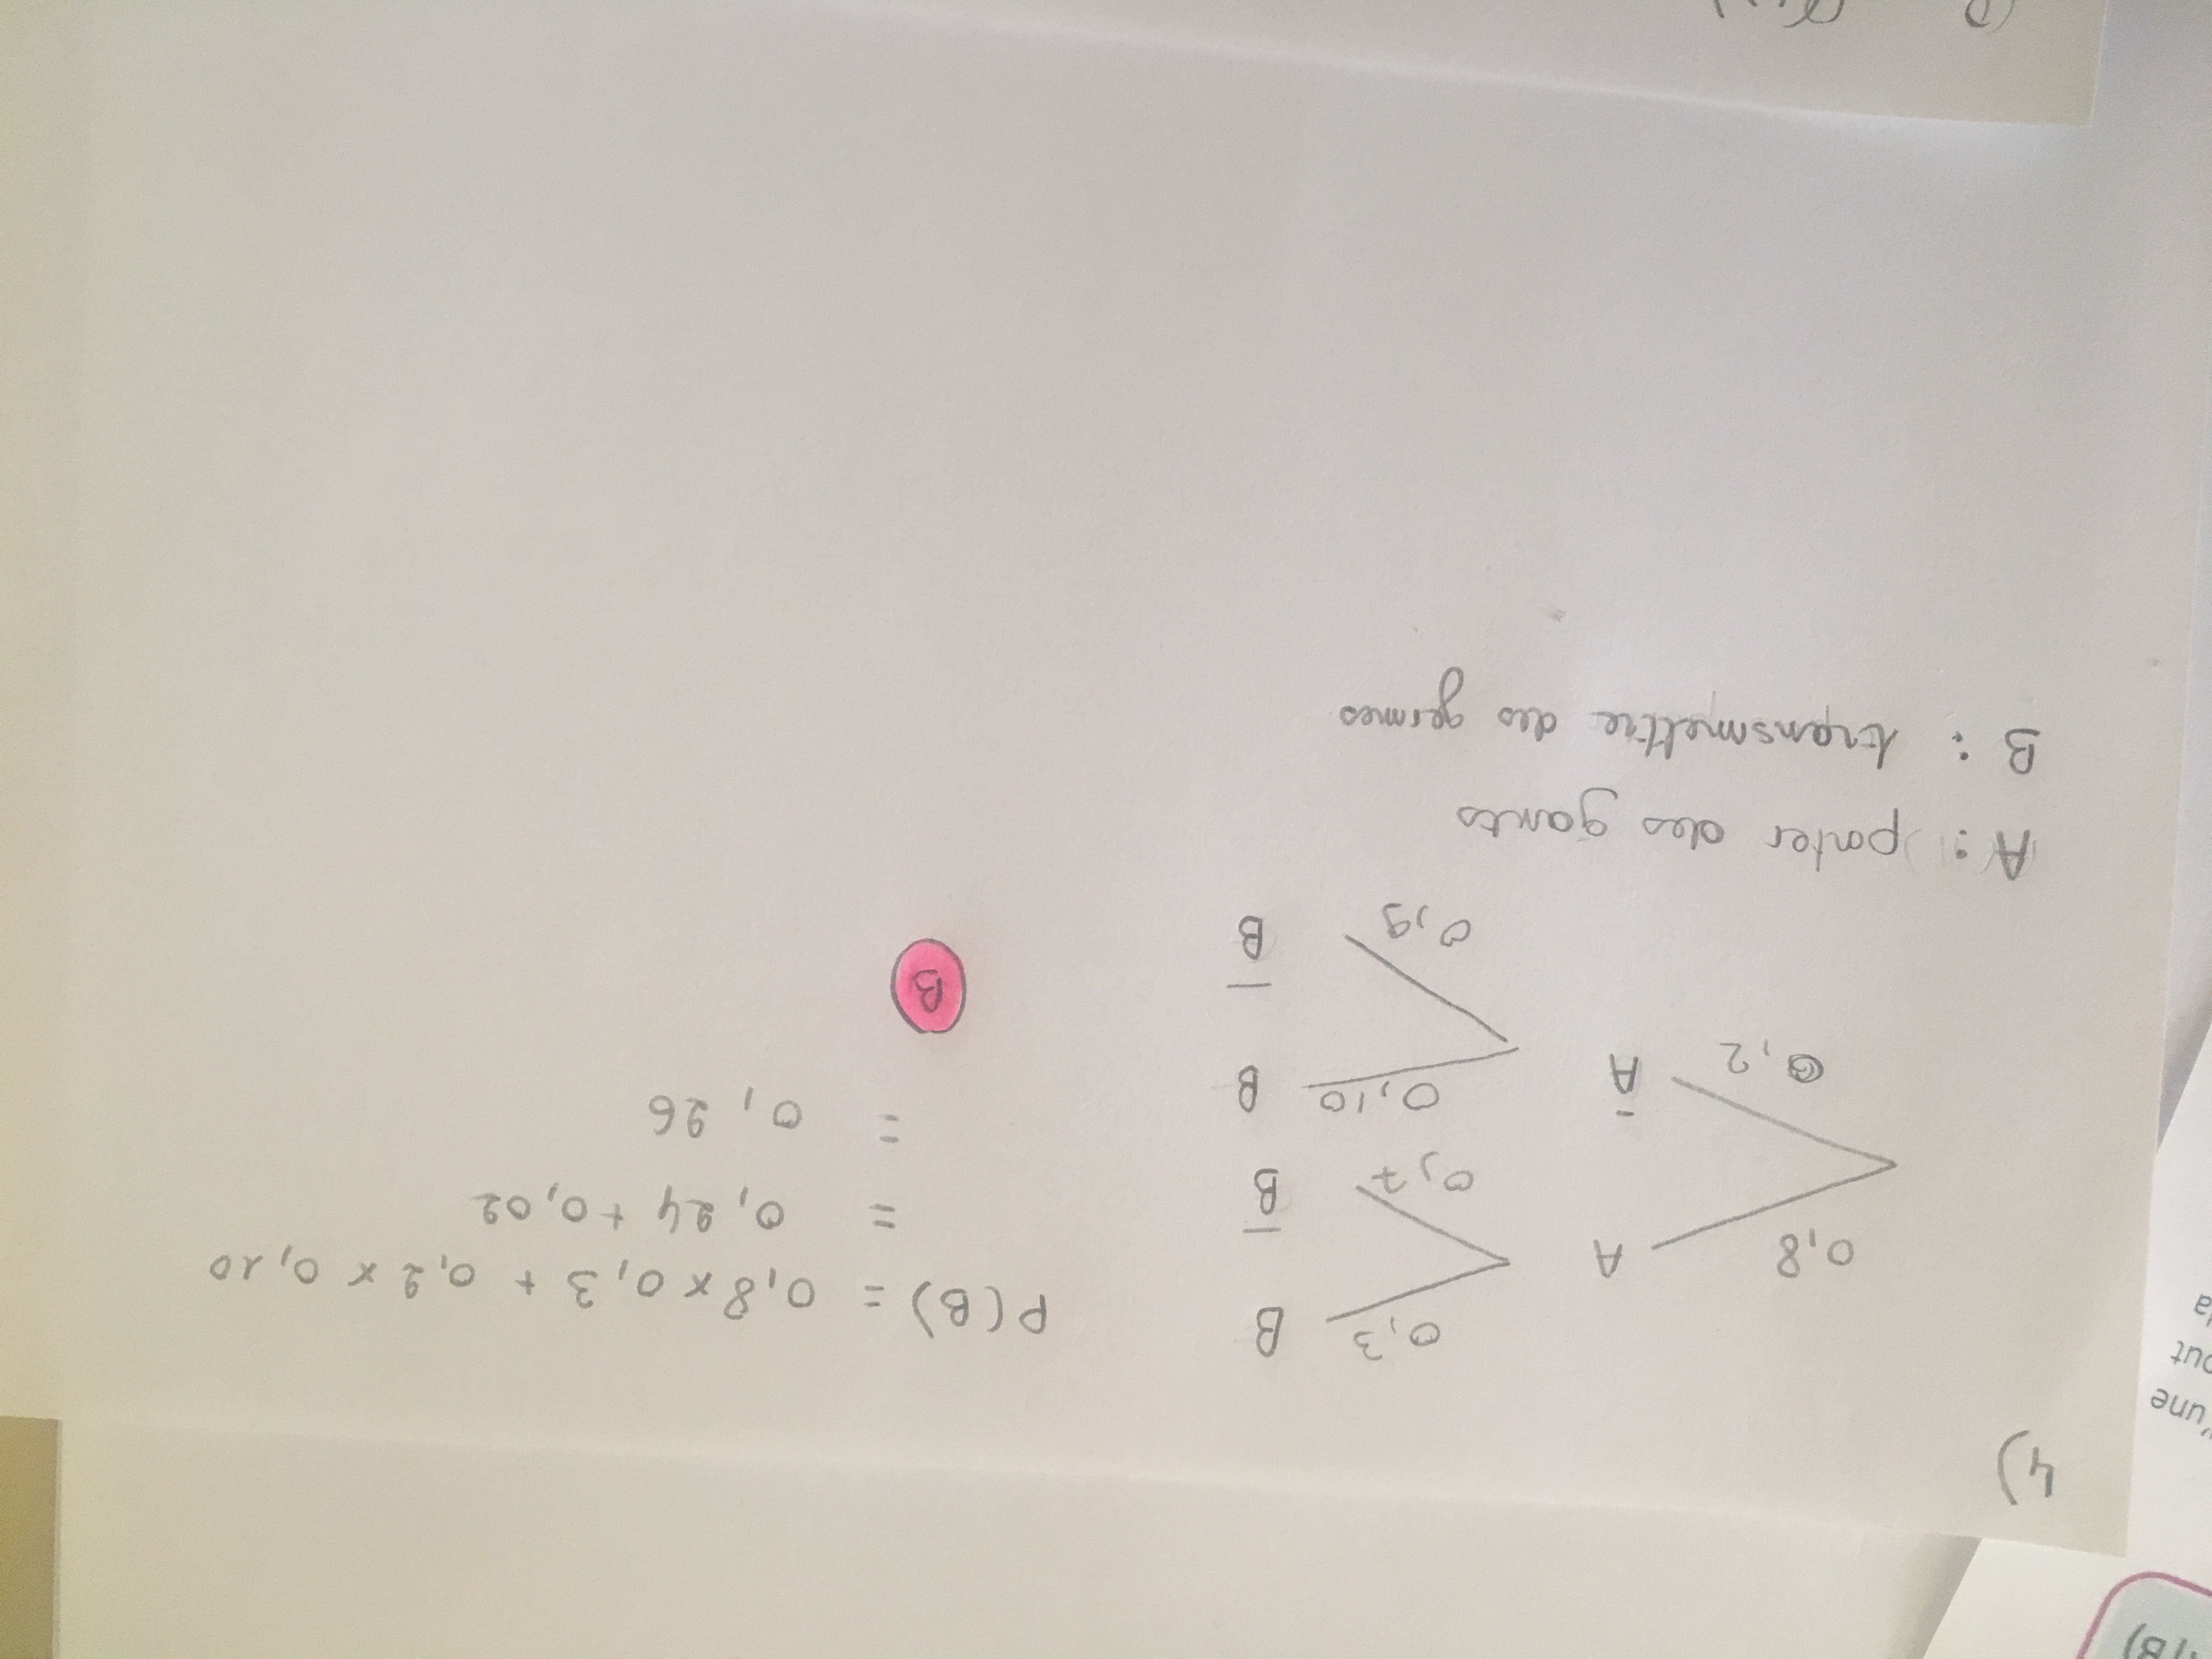 4)
0,8 A 0,3 B
0,7 B̅
0,2 A̅ 0,10 B
0,9 B̅
P(B) = 0,8 x 0,3 + 0,2 x 0,10
= 0,24 + 0,02
= 0,26
B
A : porter des gants
B : transmettre des germes
une